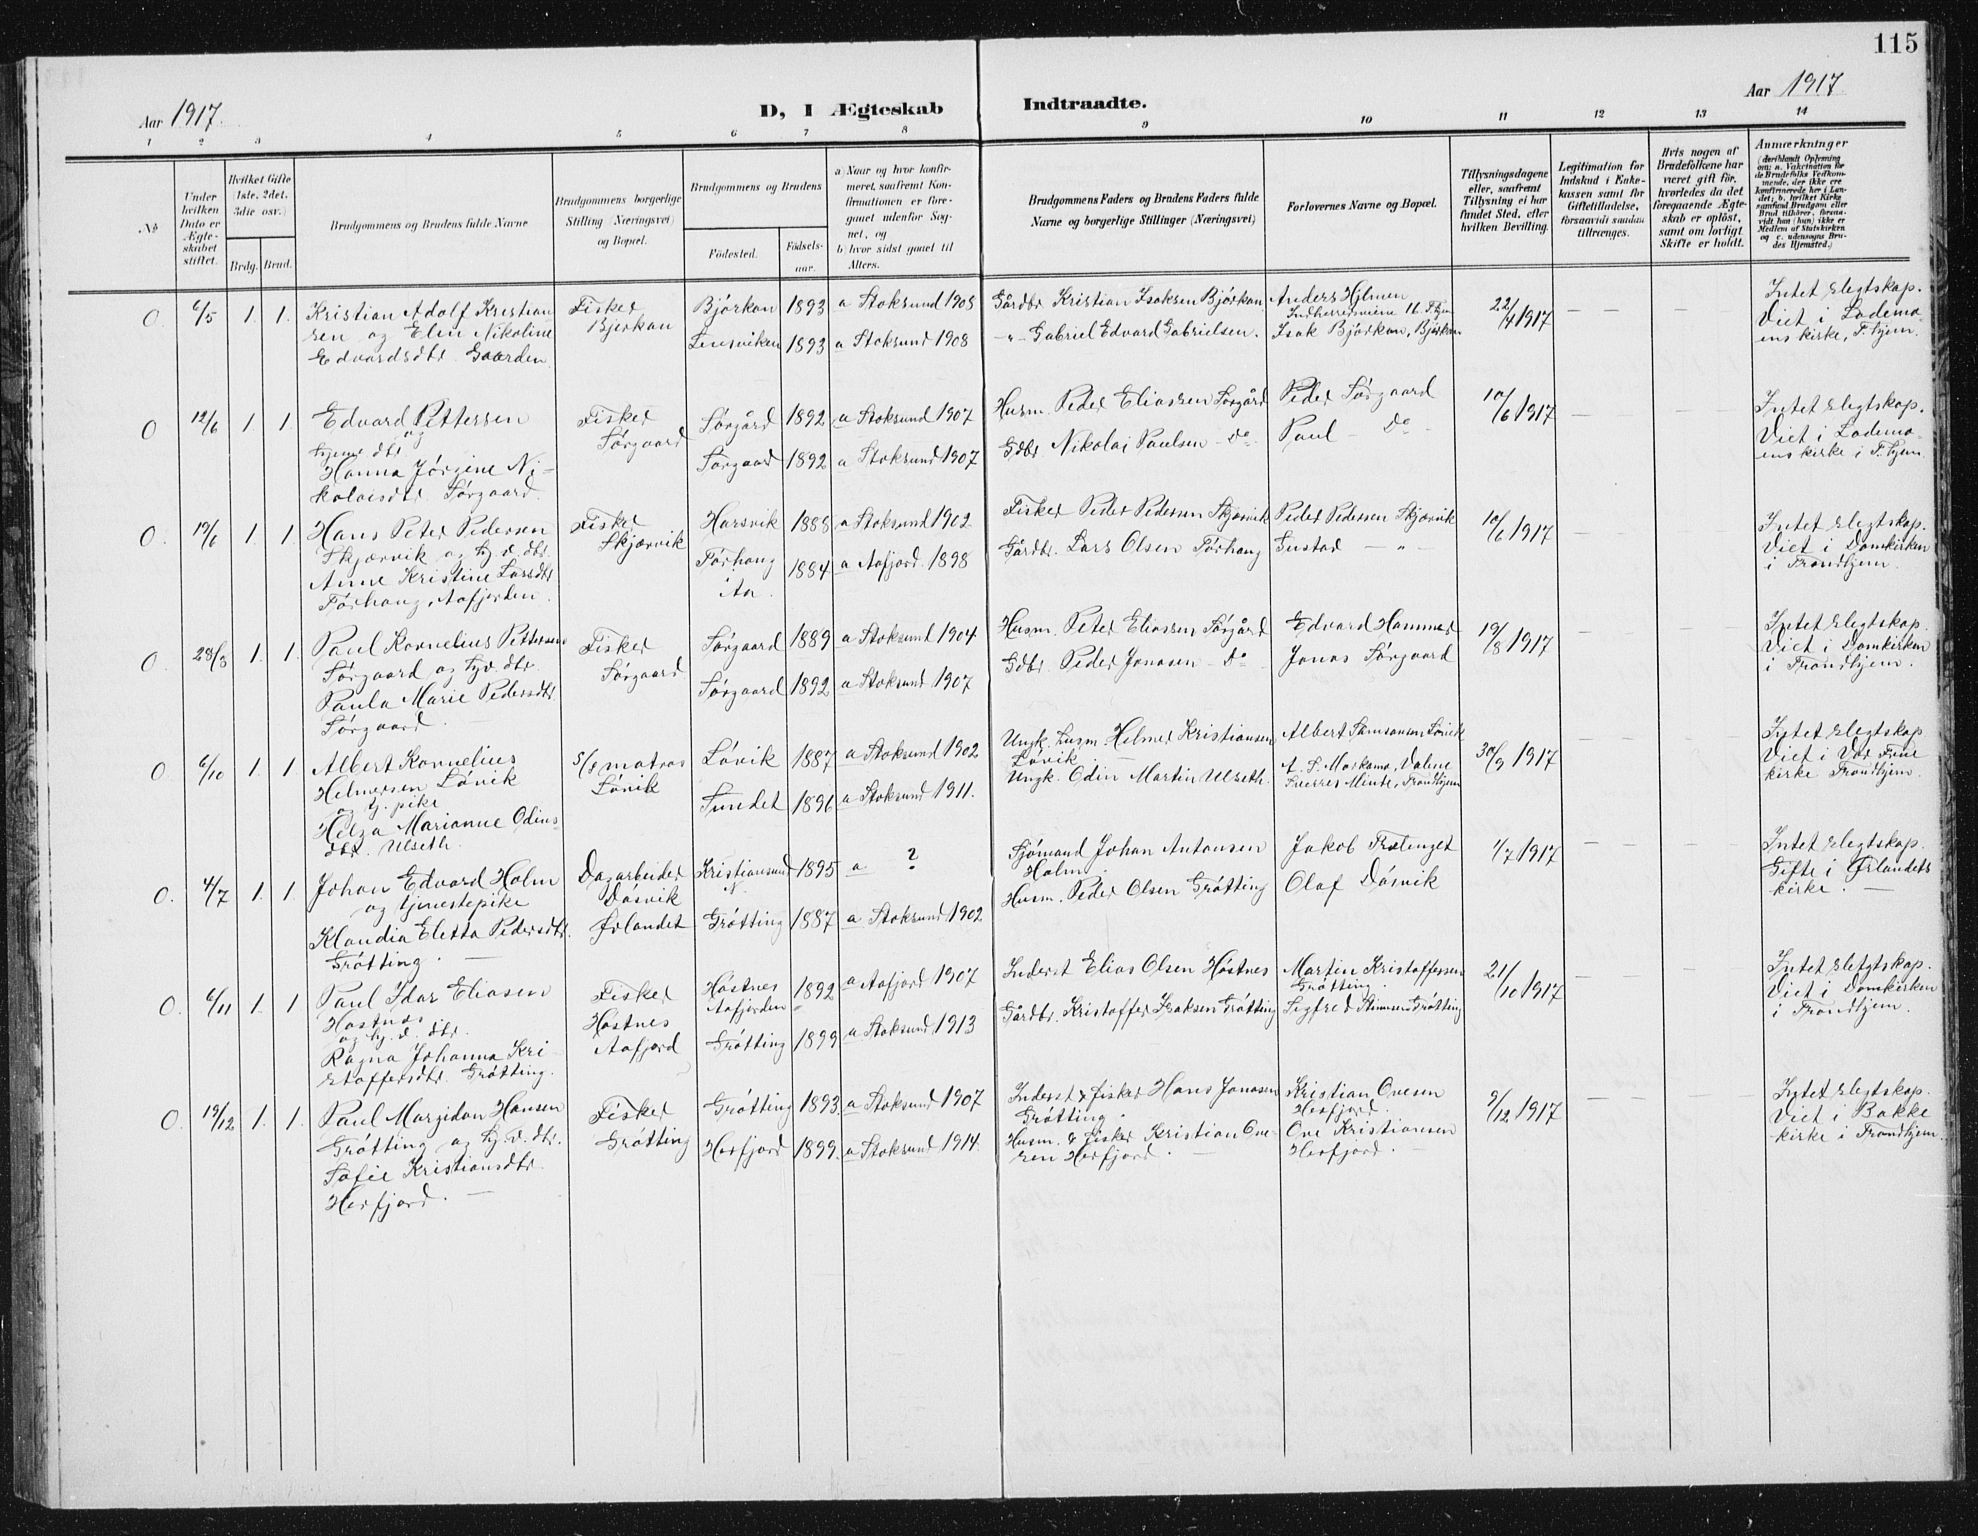 115
Aar 1917.
D, I Ægteskab
Indtraadte.
Aar 1917.
1 2 3 4 5 6 7 8 9 10 11 12 13 14
No
Under hvilken Dato er Ægteskabet stiftet.
Hvilket Gifte (1ste, 2det, 3die osv.)
Brdg. Brud.
Brudgommens og Brudens fulde Navne
Brudgommens borgerlige Stilling (Næringsvei) og Bopæl.
Brudgommens og Brudens
Fødested. Fødselsaar.
a) Naar og hvor konfirmeret, saafremt Konfirmationen er foregaaet udenfor Sognet, og
b) hvor sidst gaaet til Alters.
Brudgommens Faders og Brudens Faders fulde Navne og borgerlige Stillinger (Næringsvei)
Forlovernes Navne og Bopæl.
Tillysningsdagene eller, saafremt Tillysning ei har fundet Sted, efter hvilken Bevilling.
Legitimation for Indskud i Enkekassen samt for Giftetilladelse, forsaavidt saadan tiltrænges.
Hvis nogen af Brudefolkene har været gift før, hvorledes da det foregaaende Ægteskab er opløst, samt om lovligt Skifte er holdt.
Anmærkninger
(deriblandt Oplysning om: a. Vakcination for de Brudefolks Vedkommende, der ikke ere konfirmerede her i Landet; b. hvilket Kirkesamfund Brudgom eller Brud tilhører, forsaavidt han (hun) ikke er Medlem af Statskirken og c. udensogns Brudes Hjemsted.)
0. 6/5 1. 1. Kristian Adolf Kristian
sen og Elin Nikoline
Edvardsdtr Gaarden
Fisker
Bjørkan
Bjørkan 1893 a Stoksund 1908
Lensviken 1893 a Stoksund 1908
Gårdbr Kristian Isaksen Bjørkan
-"- Gabriel Edvard Gabrielsen.
Anders Hjlmen
Indherredsveien 16 T.hjem
Isak Bjørkan, Bjørkan
22/4 1917 — — —
Intet slegtskap.
Viet i Lademo-
ens kirke, T.hjem.
0 12/6 1. 1 Edvard Pettersen
og
tjener dtr
Hanna Jørgine Ni-
kolaisdtr Sørgaard.
Fisker
Sørgaard
Sørgård 1892 a Stoksund 1907
Sørgaard 1892 a Stoksund 1907
Husm. Peder Eliassen Sørgård
Gdbr Nikolai Paulsen - Do -
Peder Sørgaard
Paul - Do -
10/6 1917 — — —
Intet slegtskap.
Viet i Lademo-
ens kirke i T.hjem
0. 19/6 1. 1 Hans Peter Pedersen
Skjærvik og tj.v.dtr.
Anne Kristine Larsdtr
Tørhaug, Aafjorden.
Fisker
Skjærvik
Harsvik 1888 a Stoksund 1902
Tørhaug 1884 a Aafjord. 1898
i Aa
Fisker Peder Pedersen Skjærvik
Gårdbr. Lars Olsen Tørhaug
Peder Pedersen Skjærvik
Gustav — " —
10/6 1917 — — —
Intet slegtskap.
Viet i Domkirken
i Trondhjem
0. 28/8 1. 1. Paul Kornelius Pettersen
Sørgaard og tj.v. dtr.
Paula Marie Pedersdtr
Sørgaard. —
Fisker
Sørgaard
Sørgaard 1889 a Stoksund 1904
Sørgaard 1892 a Stoksund 1907
Husm. Peter Eliassen Sørgård
Gdbr. Peder Jonasen - Do
Edvard Hammer
Jonas Sørgaard
19/8 1917 — — —
Intet slegtskap.
Viet i Domkirken
i Trondhjem.
0. 6/10 1. 1. Albert Kornelius
Helmersen Løvik
og tj. pike
Helga Marianne Odins-
dtr. Ulseth.
S/S matros
Løvik
Løvik 1887 a Stoksund 1902
Sundet 1896 a Stoksund 1911.
Ungk. husm. Helmer Kristiansen
Løvik —
Ungk. Odin Martin Ulseth.
Albert Samsonsen Løvik
30/9 1917 — — —
Intet slegtskap
Viet i Vor Frue
kirke Trondhjem.
0. 4/7 1. 1. Johan Edvard Holm
og tjenestepike
Klaudia Eletta Pedersdtr.
Grøtting. —
Dagarbeider
Døsvik
Ørlandet
Kristiansund 1895 a ?
N.
Grøtting 1887 a Stoksund 1902
Sjømand Johan Antonsen
Holm
Husm. Peder Olsen Grøtting
Jakob
Olaf Døsvik
1/7 1917 — — —
Intet slegtskap.
Gifte i Ørlandets
kirke. —
0. 6/11 1. 1 Paul Idar Eliasen
Høstnes
og tj. d. dtr.
Ragna Johanna Kri-
stoffersdtr. Grøtting.
Fisker
Høstnes
Aafjord
Høstnes 1892 a Aafjord 1907
Aafjorden
Grøtting 1899 a Stoksund 1913
Inderst Elias Olsen Høstnes
Gårdbr. Kristoffer Isaksen Grøtting
Martin Kristoffersen
Grøtting.
Sigfred Grøtting
21/10 1917 — — —
Intet slegtskap.
Viet i Domkirken
i Trondhjem.
0. 19/12 1. 1. Paul Margidon Hansen
Grøtting og tj.v.dtr.
Sofie Kristiansdtr.
Herfjord. —
Fisker
Grøtting
Grøtting 1893 a Stoksund 1907
Herfjord 1899. a Stoksund 1914.
Inderst & fisker Hans Jonasen
Grøtting.
Husm. & fisker Kristian Ove-
sen Herfjord. —
Kristian Ovesen
Herfjord.
Ove Kristiansen
Herfjord. —
9/12 1917 — — —
Intet slegtskap.
Viet i Bakke
kirke i Trondhjem.